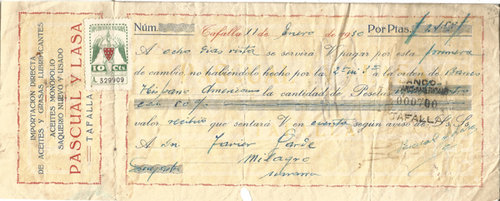 IMPORTACIÓN DIRECTA
DE ACEITES Y GRASAS LUBRIFICANTES
ACEITES MONOPOLIO
SAQUERIO NUEVO Y USADO
PASCUAL Y LASA
TAFALLA
10 Cts
L 329909
Núm. Tafalla 11 de Enero de 1930 Por Ptas.
A ocho días vista se servirá V. pagar por esta primera
de cambio, no habiéndolo hecho por la 2ª a la orden de Banco
Hispano Americano la cantidad de Pesetas
valor recibido que sentará V. en cuenta según aviso de S. S.
BANCO
000700
TAFALLA
A Dn Javier Garde
Milagro
Navarra